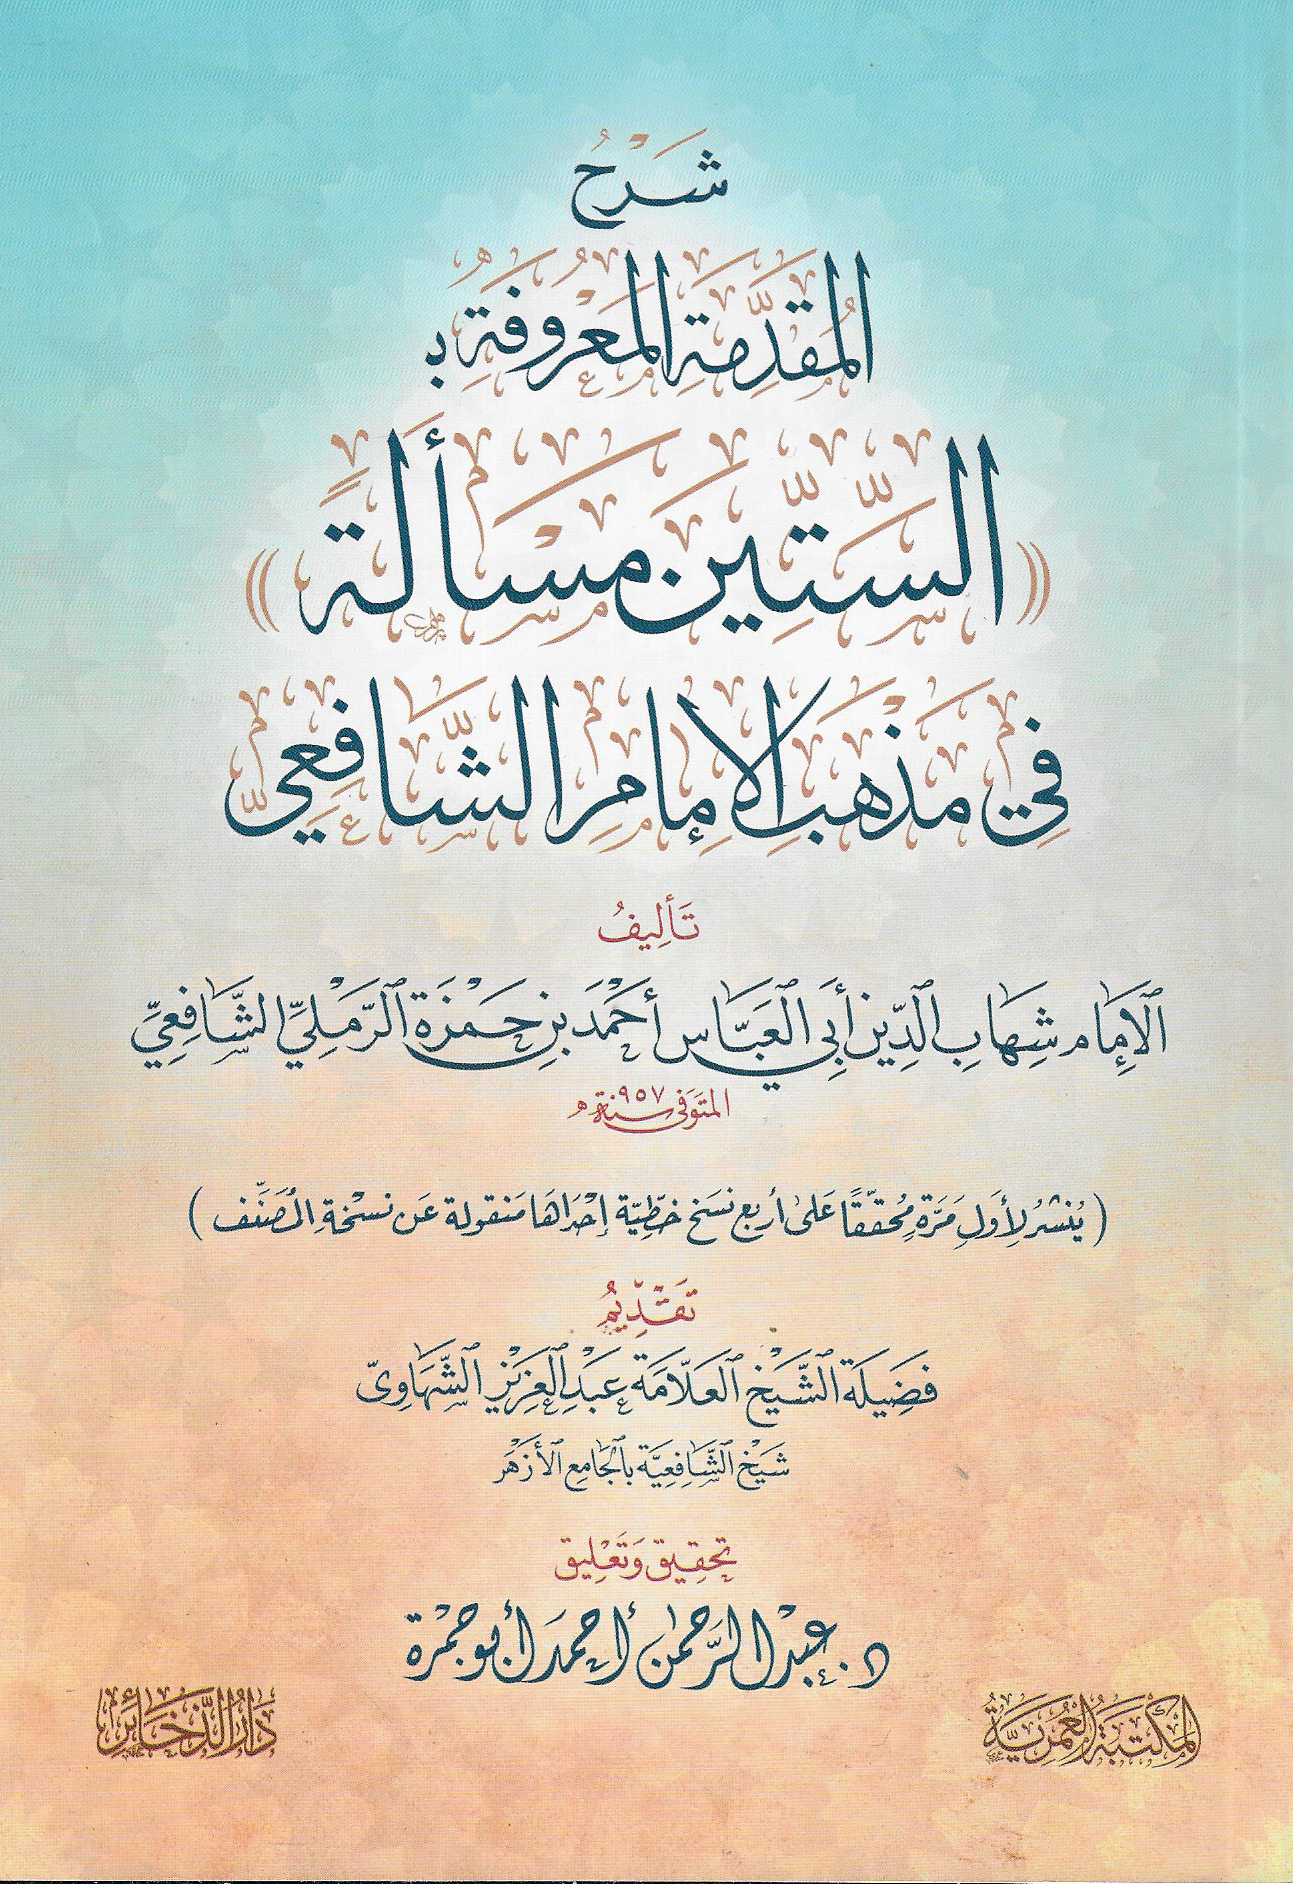 شَرْحُ
المُقَدِّمَةِ المَعْرُوفَةِ بـ
((السِّتِّينَ مَسْأَلَةً))
فِي مَذْهَبِ الإِمَامِ الشَّافِعِيِّ
تَأْلِيفُ
الإِمَامِ شِهَابِ الدِّينِ أَبِي العَبَّاسِ أَحْمَدَ بْنِ حَمْزَةَ الرَّمْلِيِّ الشَّافِعِيِّ
المتَوَفى سنة ٩٥٧ هـ
(يُنْشَرُ لِأَوَّلِ مَرَّةٍ مُحَقَّقًا عَلَى أَرْبَعِ نُسَخٍ خَطِّيَّةٍ إِحْدَاهَا مَنْقُولَة عَنْ نُسْخَةِ المُصَنِّف)
تَقْدِيمُ
فَضِيلَة الشَّيْخ العَلَّامَة عَبْدِ العَزِيز الشَّهَاوِيّ
شَيْخ الشَّافِعِيَّة بِالجَامِع الأَزْهَر
تَحْقِيق وَتَعْلِيق
د. عَبْد الرَّحْمٰن أَحْمَد أَبُو جَمْرَة
المَكْتَبَةُ العُمَرِيَّةُ
دَارُ الذَّخَائِرِ